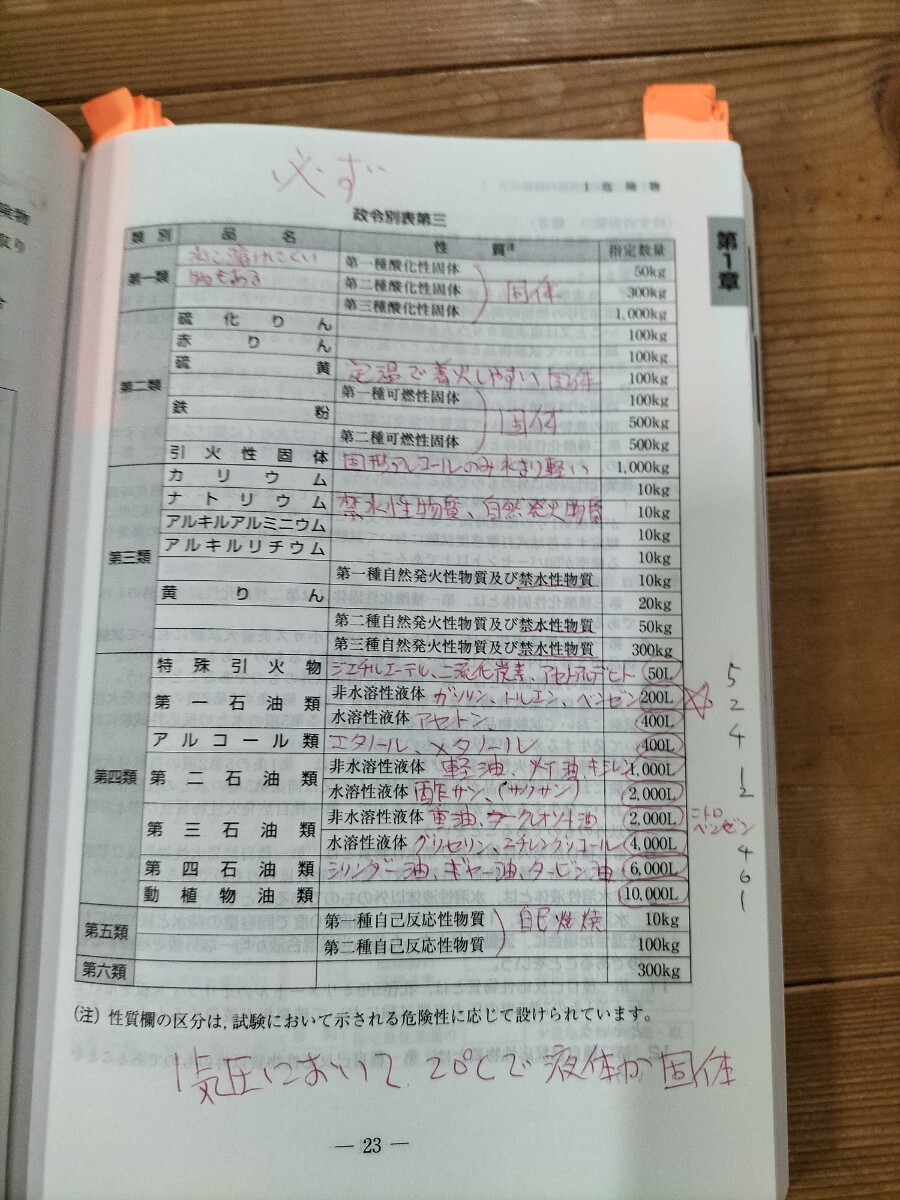 険物
取り
必ず
1 危険物
第1章
政令別表第三
類別 品名 性質注 指定数量
第一類 水に溶けにくい 第一種酸化性固体 50kg
物もある 第二種酸化性固体 固体 300kg
第三種酸化性固体 1,000kg
第二類 硫化りん 100kg
赤りん 100kg
硫黄 定温で着火しやすい固体 100kg
第一種可燃性固体 固体 100kg
鉄粉 500kg
第二種可燃性固体 500kg
引火性固体 固形アルコールのみ水より軽い 1,000kg
第三類 カリウム 10kg
ナトリウム 禁水性物質、自然発火物質 10kg
アルキルアルミニウム 10kg
アルキルリチウム 10kg
第一種自然発火性物質及び禁水性物質 10kg
黄りん 20kg
第二種自然発火性物質及び禁水性物質 50kg
第三種自然発火性物質及び禁水性物質 300kg
第四類 特殊引火物 ジエチルエーテル、二流化炭素、アセトアルデヒド 50L 5
第一石油類 非水溶性液体 ガソリン、トルエン、ベンゼン 200L 2
水溶性液体 アセトン、 400L 4
アルコール類 エタノール、メタノール 400L
第二石油類 非水溶性液体 軽油、灯油、キシレン 1,000L 1
水溶性液体 酢サン、(サクサン) 2,000L 2
第三石油類 非水溶性液体 重油、クレオソート油 2,000L ニトロベンゼン
水溶性液体 グリセリン、エチレングリコール 4,000L 4
第四石油類 シリンダー油、ギヤー油、タービン油 6,000L 6
動植物油類 10,000L 1
第五類 第一種自己反応性物質 自己燃焼 10kg
第二種自己反応性物質 100kg
第六類 300kg
(注) 性質欄の区分は,試験において示される危険性に応じて設けられています。
1気圧において、20℃で液体か固体
— 23 —